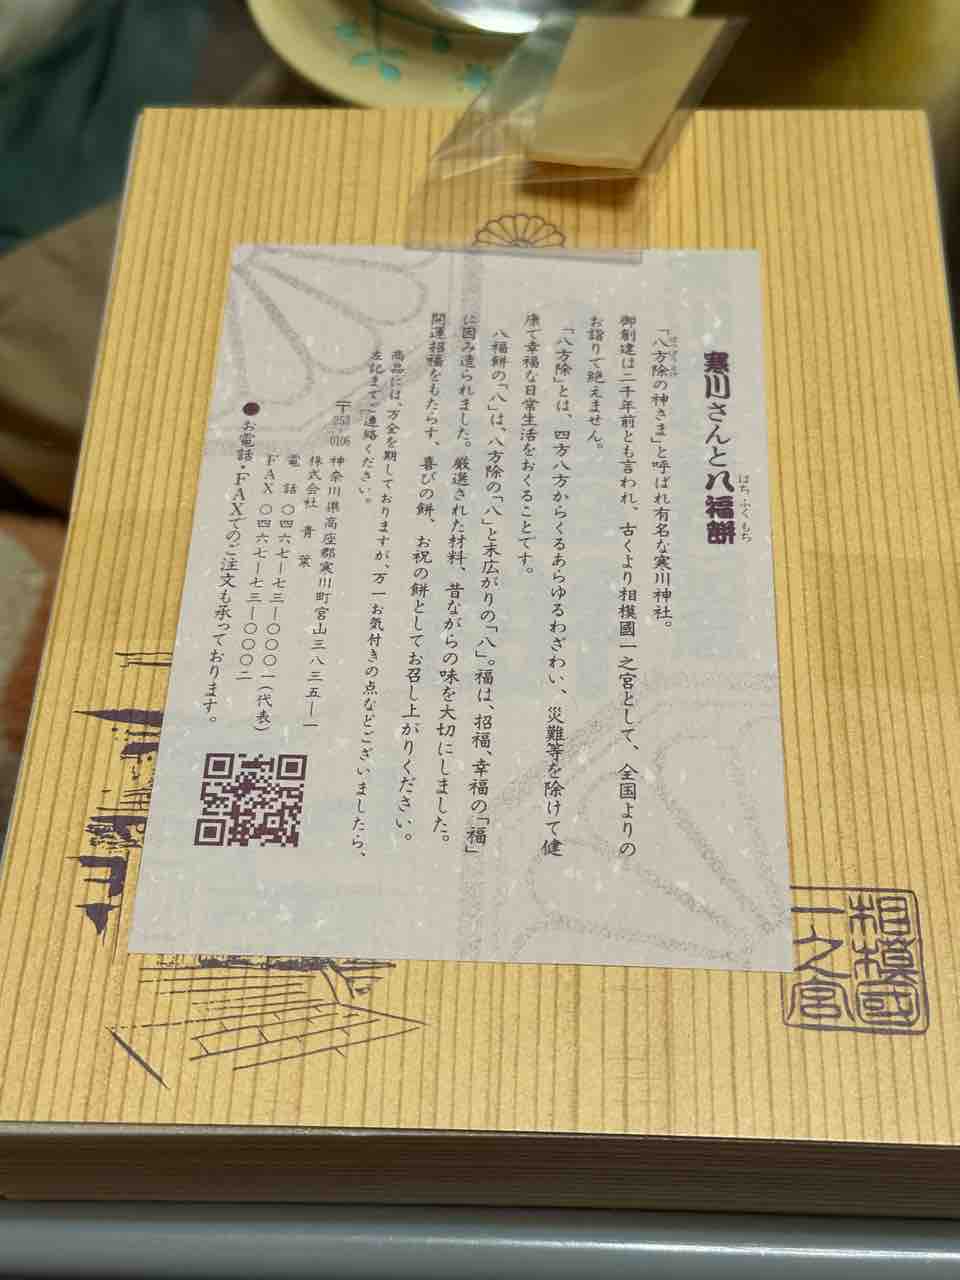 寒川さんと八福餅
はちふくもち
「八方除の神さま」と呼ばれ有名な寒川神社。
御創建は二千年前とも言われ、古くより相模國一之宮として、全国よりの
お詣りて絶えません。
「八方除」とは、四方八方からくるあらゆるわざわい、災難等を除けて健
康で幸福な日常生活をおくることです。
八福餅の「八」は、八方除の「八」と末広がりの「八」。福は、招福、幸福の「福」
に因み造られました。厳選された材料、昔ながらの味を大切にしました。
開運招福をもたらす、喜びの餅、お祝の餅としてお召し上がりください。
商品には、万全を期しておりますが、万一お気付きの点などございましたら、
左記までご連絡ください。
〒253-0106
神奈川県高座郡寒川町宮山三八三五ー一
株式会社 青葉
電話 〇四六七ー七三ー〇〇〇一(代表)
FAX 〇四六七ー七三ー〇〇〇二
●お電話・FAXでのご注文も承っております。
相模國
一之宮